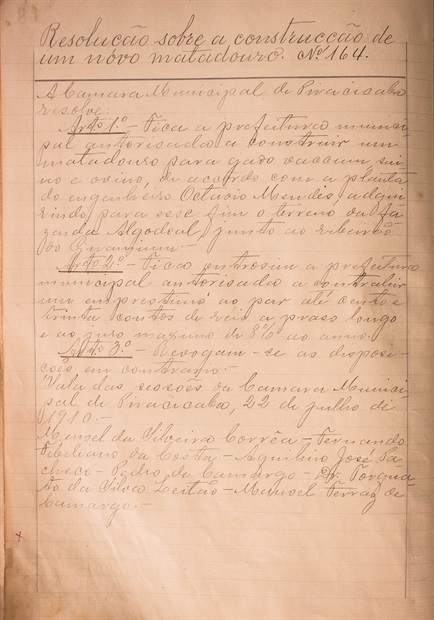 Resolução sobre a construcção de
um nóvo matadouro. Nº 164.
A Camara Municipal de Piracicaba
resolve:
Artº 1º - Fica a prefeitura munici-
pal autorisada a construir um
matadouro para gado vaccum, sui-
no e ovino, de accordo com a planta
do engenheiro Octavio Mendes, adqui-
rindo para esse fim o terreno da fa-
zenda Algodoal, junto ao ribeirão
do Guamium -
Artº 2º - Fica outrosim a prefeitura
municipal autorisada a contrahir
um emprestimo ao par até cento e
trinta contos de reis a praso longo
e ao juro maximo de 8% ao anno.
Artº 3º - Revogam-se as disposi-
cões em contrario -
Sala das sessões da Camara Munici-
pal de Piracicaba, 22 de julho de
1910. -
Manoel da Silveira Corrêa - Fernando
Febeliano da Costa - Aquilino José Pa-
checo - Pedro de Camargo - Dr. Torqua-
to da Silva Leitão - Manoel Ferraz de
Camargo -